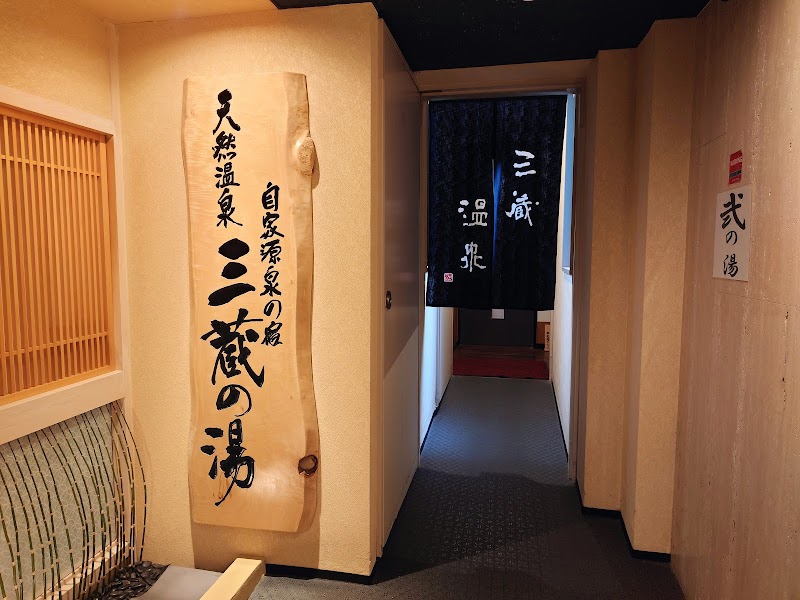 自家源泉の宿
天然温泉
三蔵の湯
三蔵
温泉
弐の湯